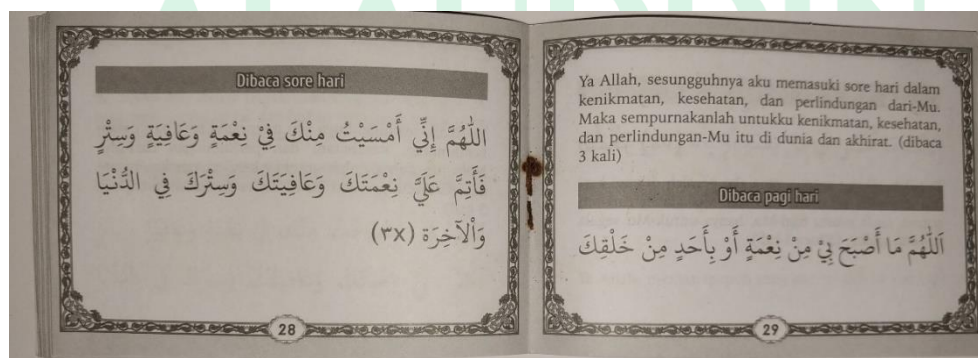 Dibaca sore hari
اللّٰهُمَّ إِنِّي أَمْسَيْتُ مِنْكَ فِيْ نِعْمَةٍ وَعَافِيَةٍ وَسِتْرٍ
فَأَتِمَّ عَلَيَّ نِعْمَتَكَ وَعَافِيَتَكَ وَسِتْرَكَ فِي الدُّنْيَا
وَاْلآخِرَة (٣x)
28
Ya Allah, sesungguhnya aku memasuki sore hari dalam
kenikmatan, kesehatan, dan perlindungan dari-Mu.
Maka sempurnakanlah untukku kenikmatan, kesehatan,
dan perlindungan-Mu itu di dunia dan akhirat. (dibaca
3 kali)
Dibaca pagi hari
اَللّٰهُمَّ مَا أَصْبَحَ بِيْ مِنْ نِعْمَةٍ أَوْ بِأَحَدٍ مِنْ خَلْقِكَ
29